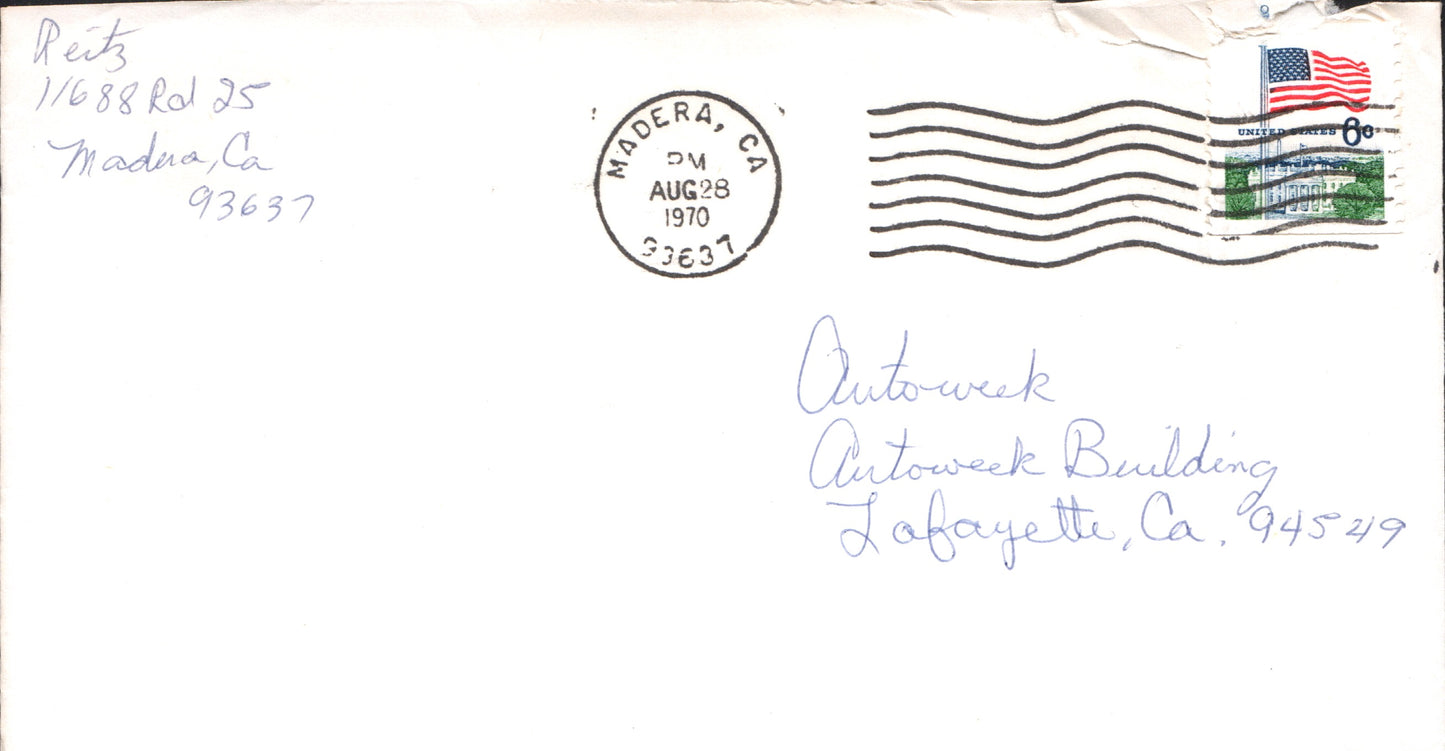 Reitz
11688 Rd 25
Madera, Ca
93637
MADERA, CA
PM
AUG 28
1970
93637
UNITED STATES 6c
Autoweek
Autoweek Building
Lafayette, Ca. 94549